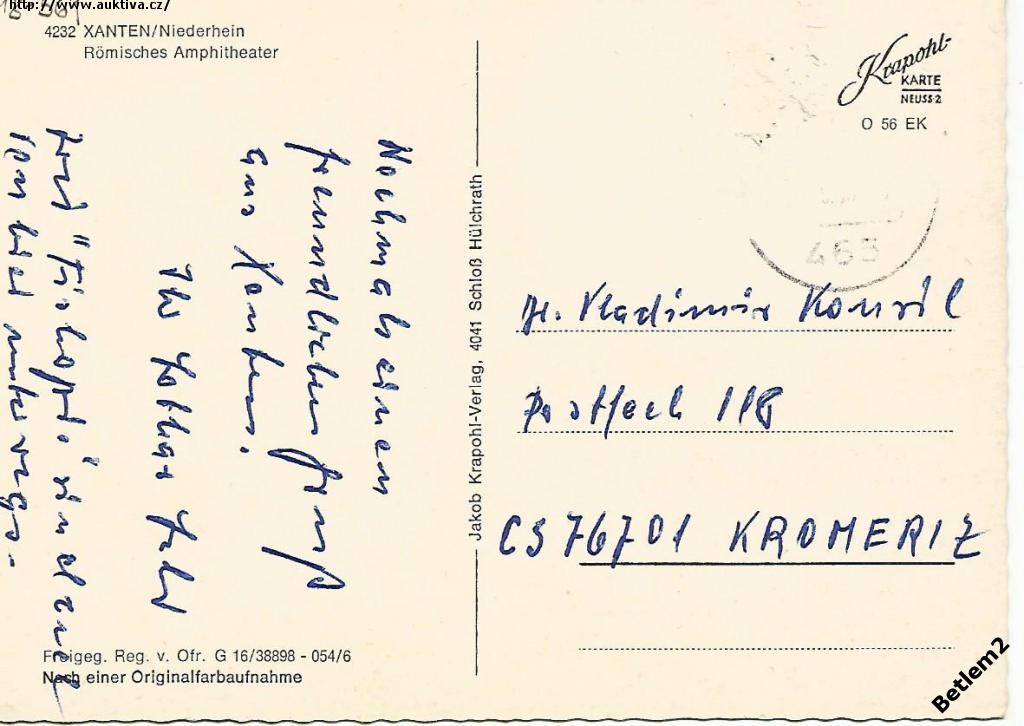 http://www.auktiva.cz/
4232 XANTEN/Niederhein
Römisches Amphitheater
Krapohl-
KARTE
NEUSS-2
O 56 EK
465
Nochmals einen
freundlichen Gruß
aus Xanten.
Ihr Lothar
und
unterwegs.
Jakob Krapohl-Verlag, 4041 Schloß Hülchrath
Hr. Vladimir
Postfach 118
CS 76701 KROMERIZ
Freigeg. Reg. v. Ofr. G 16/38898 - 054/6
Nach einer Originalfarbaufnahme
Betlem2